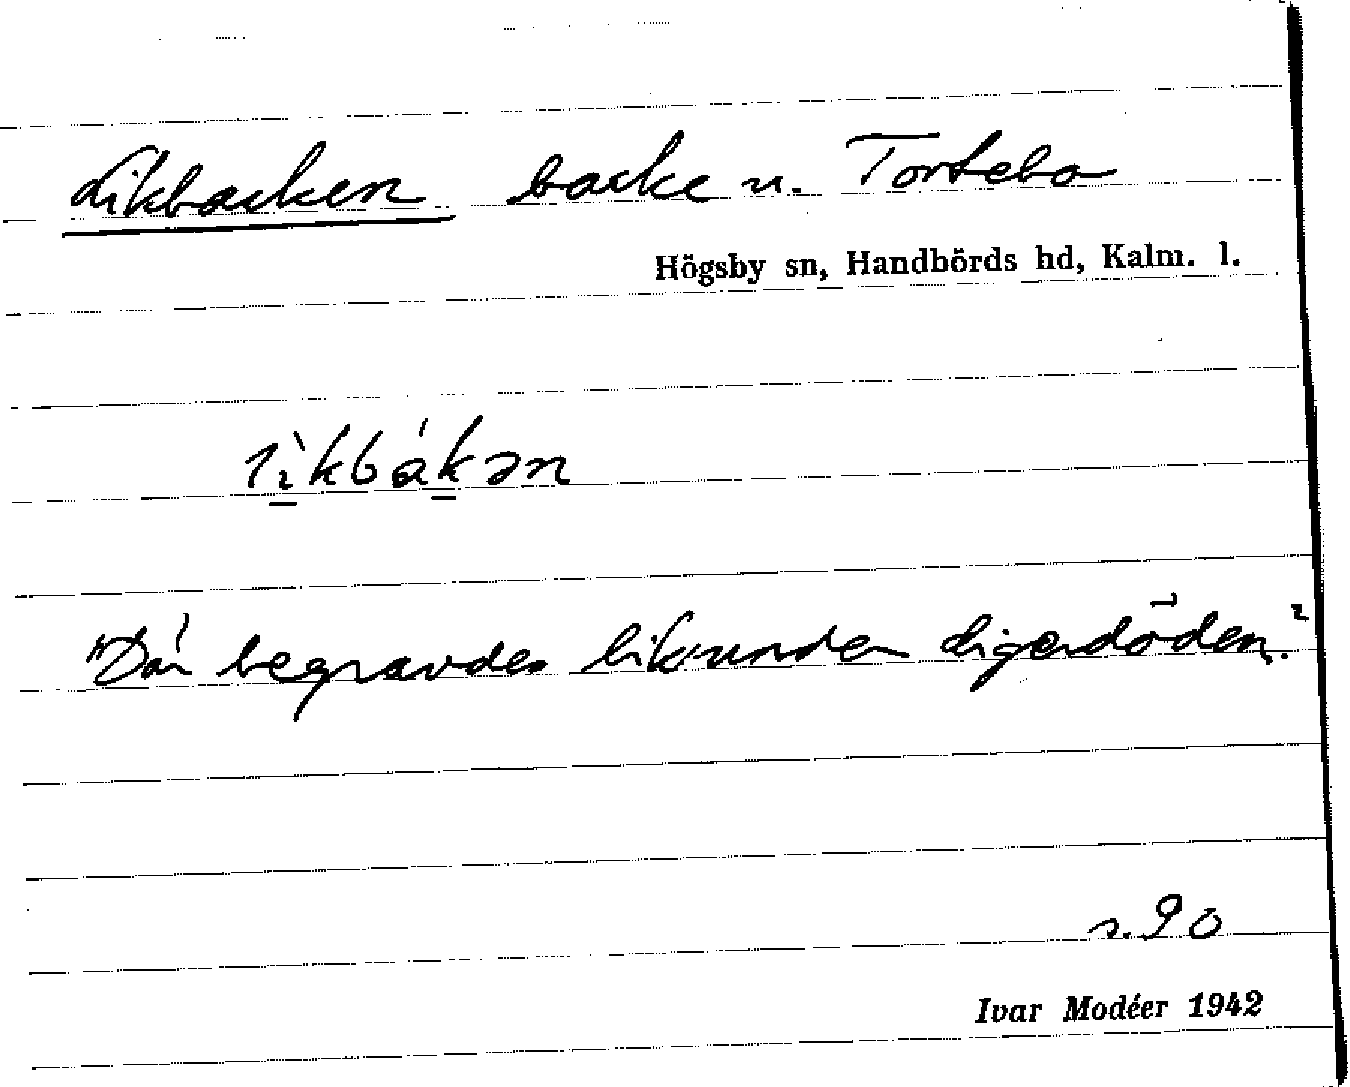 Likbacken backe u. Tortebo
Högsby sn, Handbörds hd, Kalm. l.
lì̱kbáḵən
"Där begravdes lik under digerdöden."
s. 90
Ivar Modéer 1942